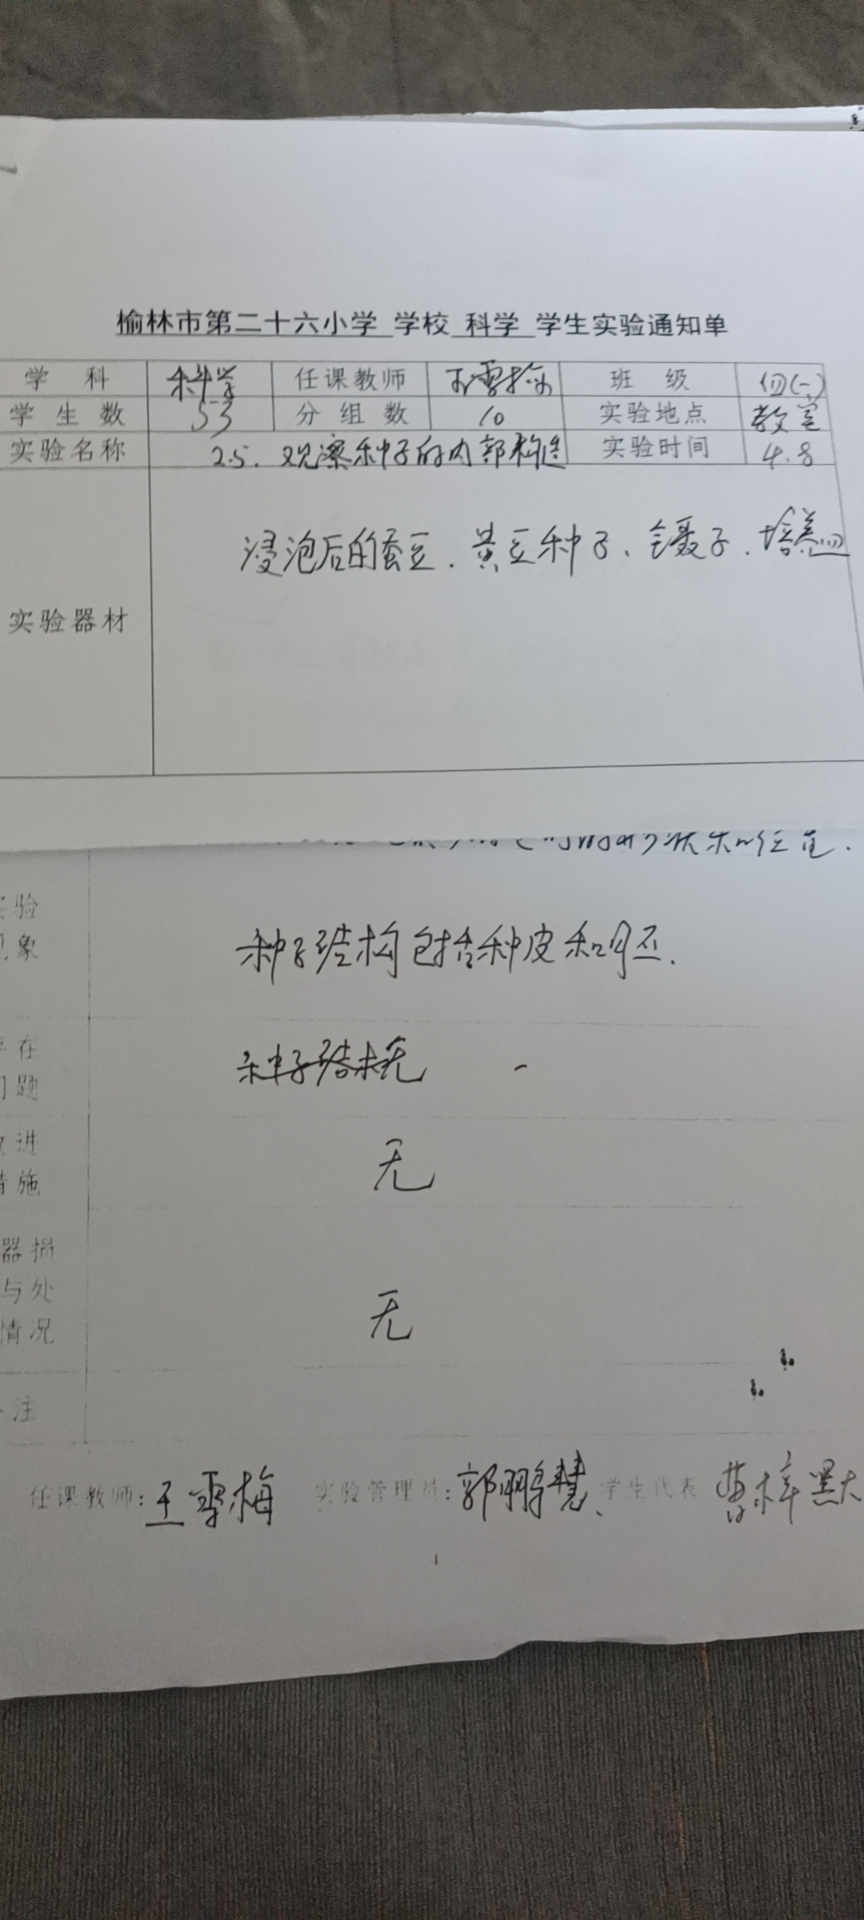 榆林市第二十六小学 学校 科学 学生实验通知单
学 科 科学 任课教师 王雪梅 班 级 四(一)
学 生 数 53 分 组 数 10 实验地点 教室
实验名称 2.5. 观察种子的内部构造 实验时间 4.8
实验器材 浸泡后的蚕豆、黄豆种子、镊子、培养皿
形状和位置.
实验
现象 种子结构包括种皮和胚.
存在
问题 种子结构无
改进
措施 无
器损
与处
情况 无
注
任课教师: 王雪梅 实验管理员: 郭鹏慧 学生代表 曹梓默